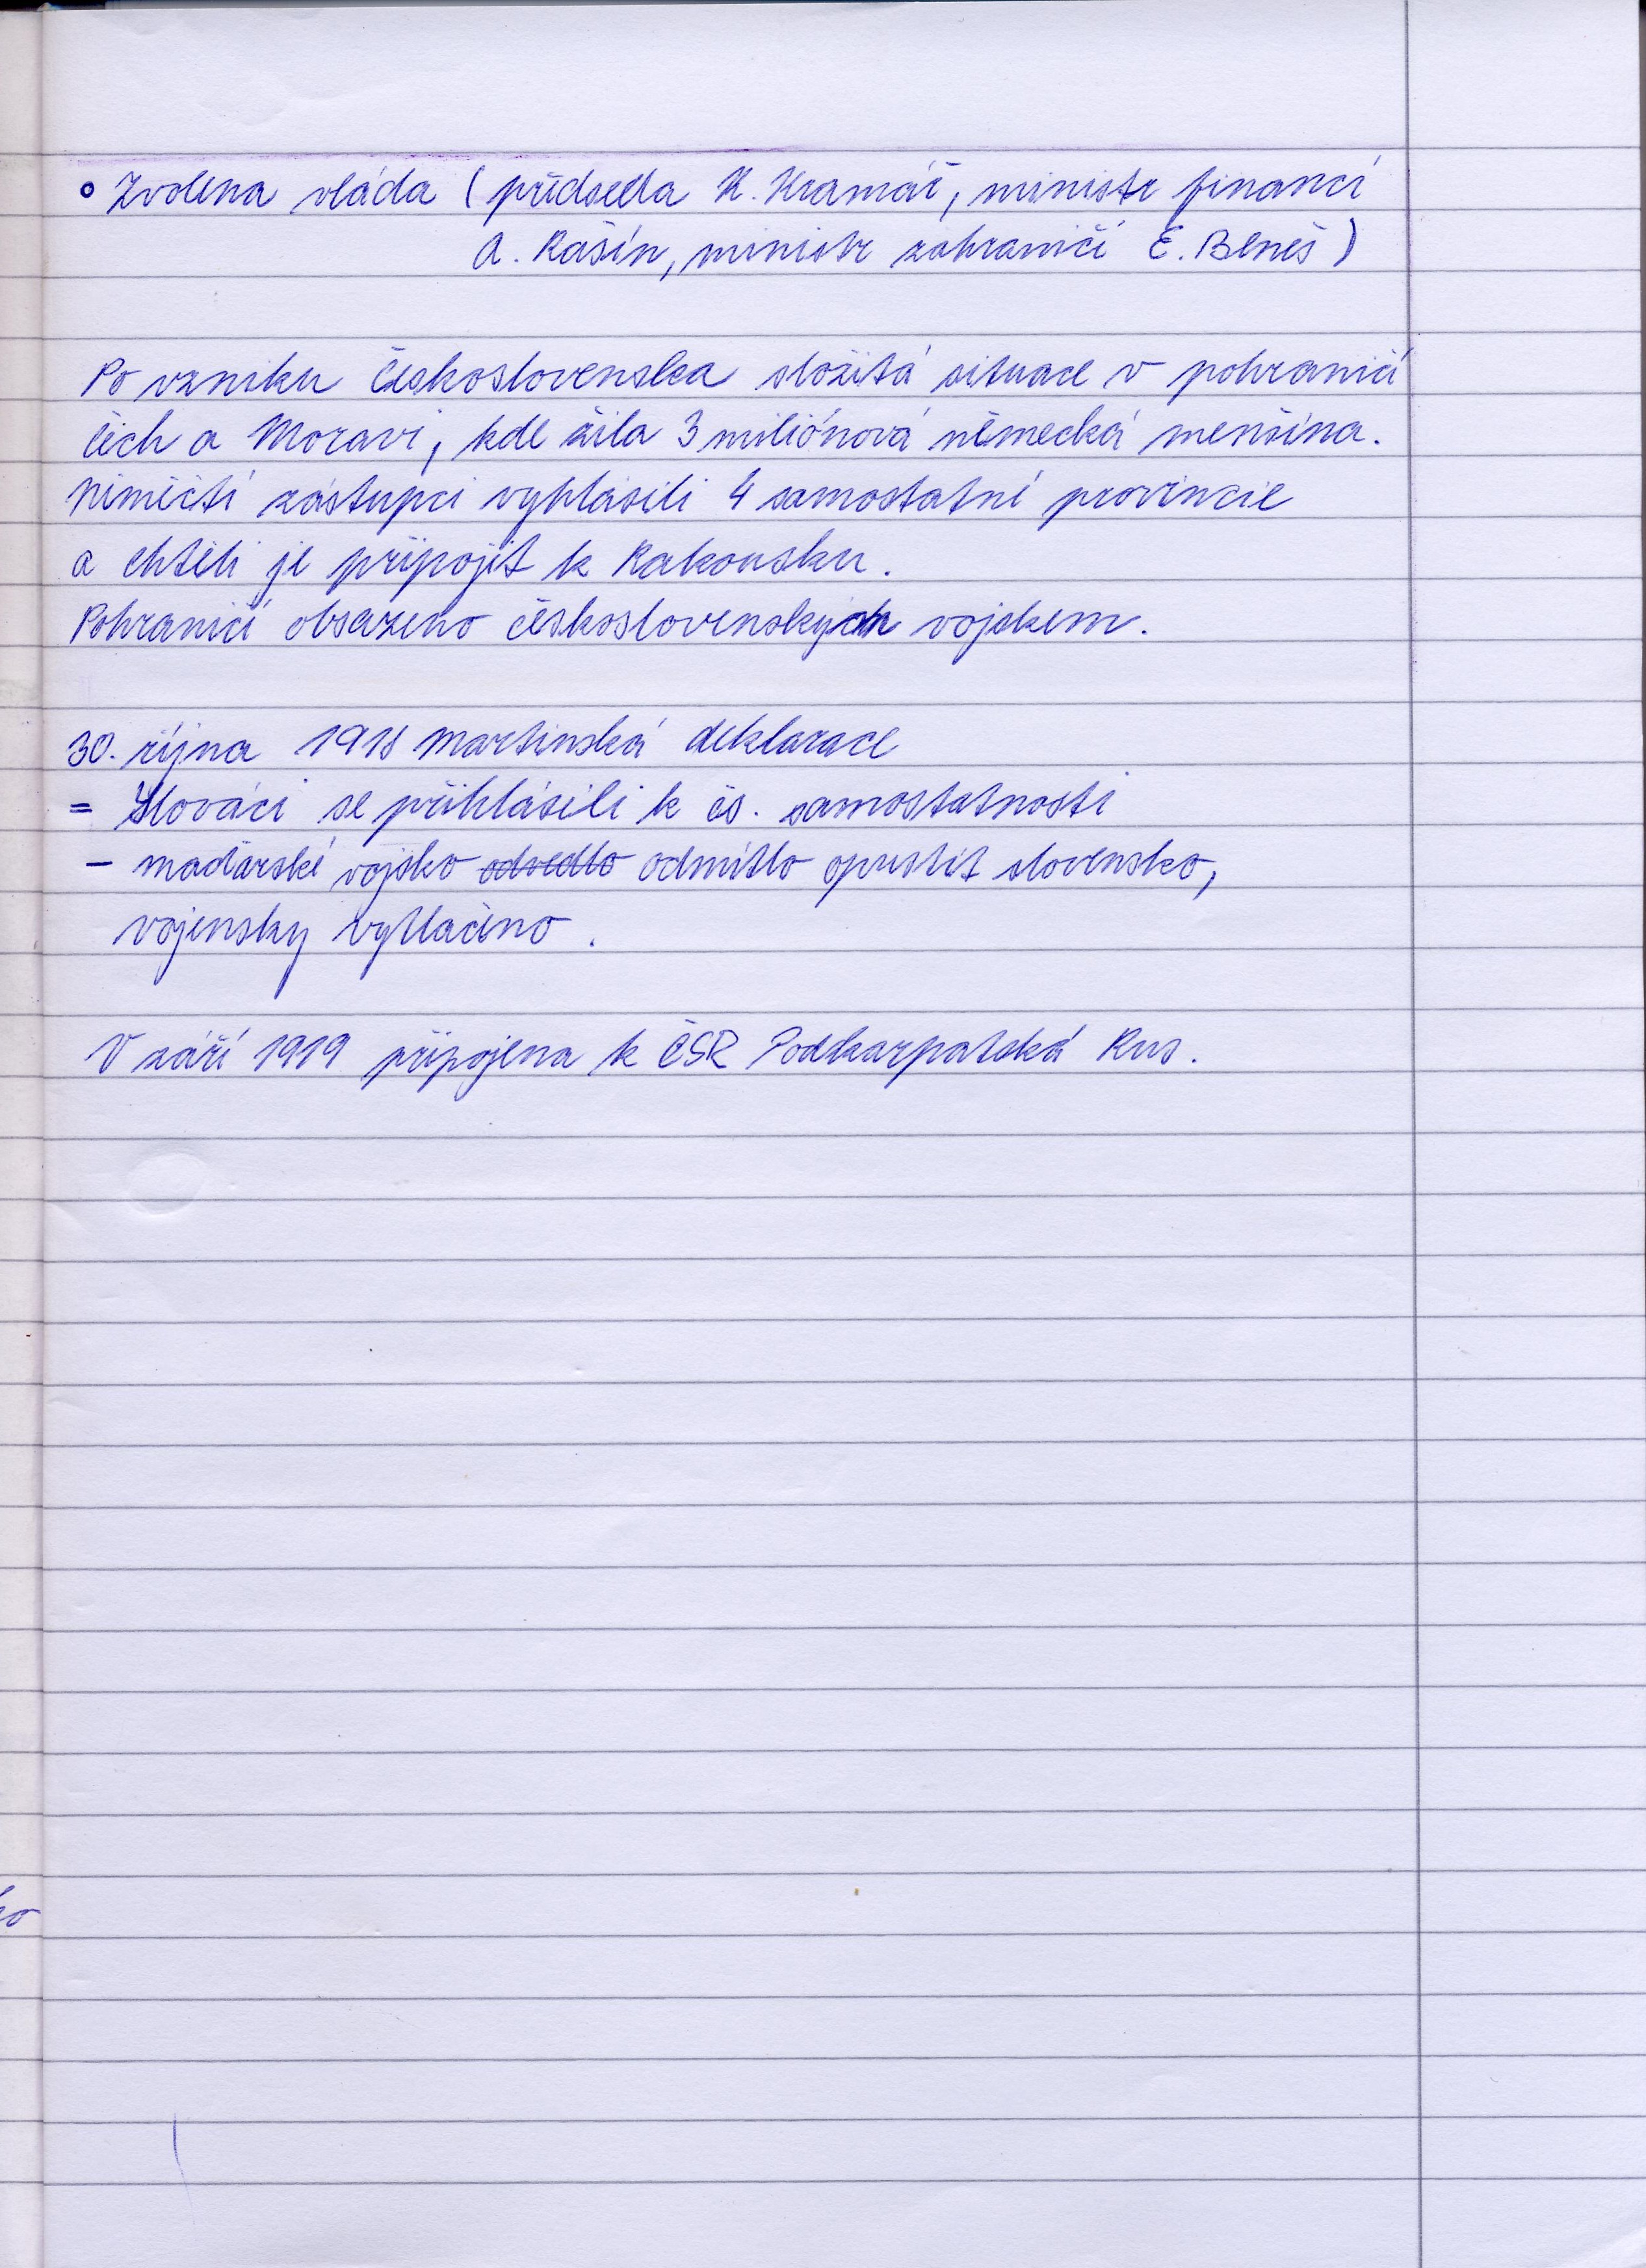 • Zvolena vláda (předseda K. Kramář, ministr financí
A. Rašín, ministr zahraničí E. Beneš)
Po vzniku Československa složitá situace v pohraničí
Čech a Moravě, kde žila 3 miliónová německá menšina.
Němečtí zástupci vyhlásili 4 samostatné provincie
a chtěli je připojit k Rakousku.
Pohraničí obsazeno československým vojskem.
30. října 1918 Martinská deklarace
= Slováci se přihlásili k čs. samostatnosti
- maďarské vojsko odvedlo odmítlo opustit slovensko,
vojensky vytlačeno.
V září 1919 připojena k ČSR Podkarpatská Rus.